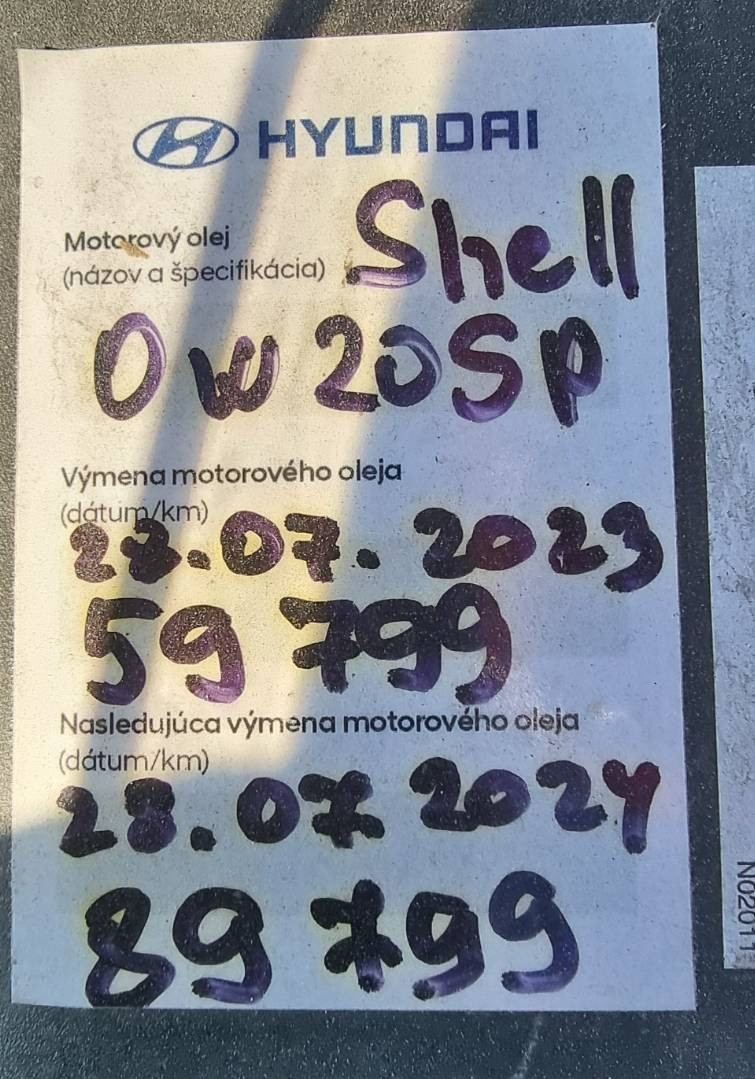 HYUNDAI
Motorový olej Shell
(názov a špecifikácia)
0W20SP
Výmena motorového oleja
(dátum/km)
28.07.2023
59 799
Nasledujúca výmena motorového oleja
(dátum/km)
28.07 2024
89 799